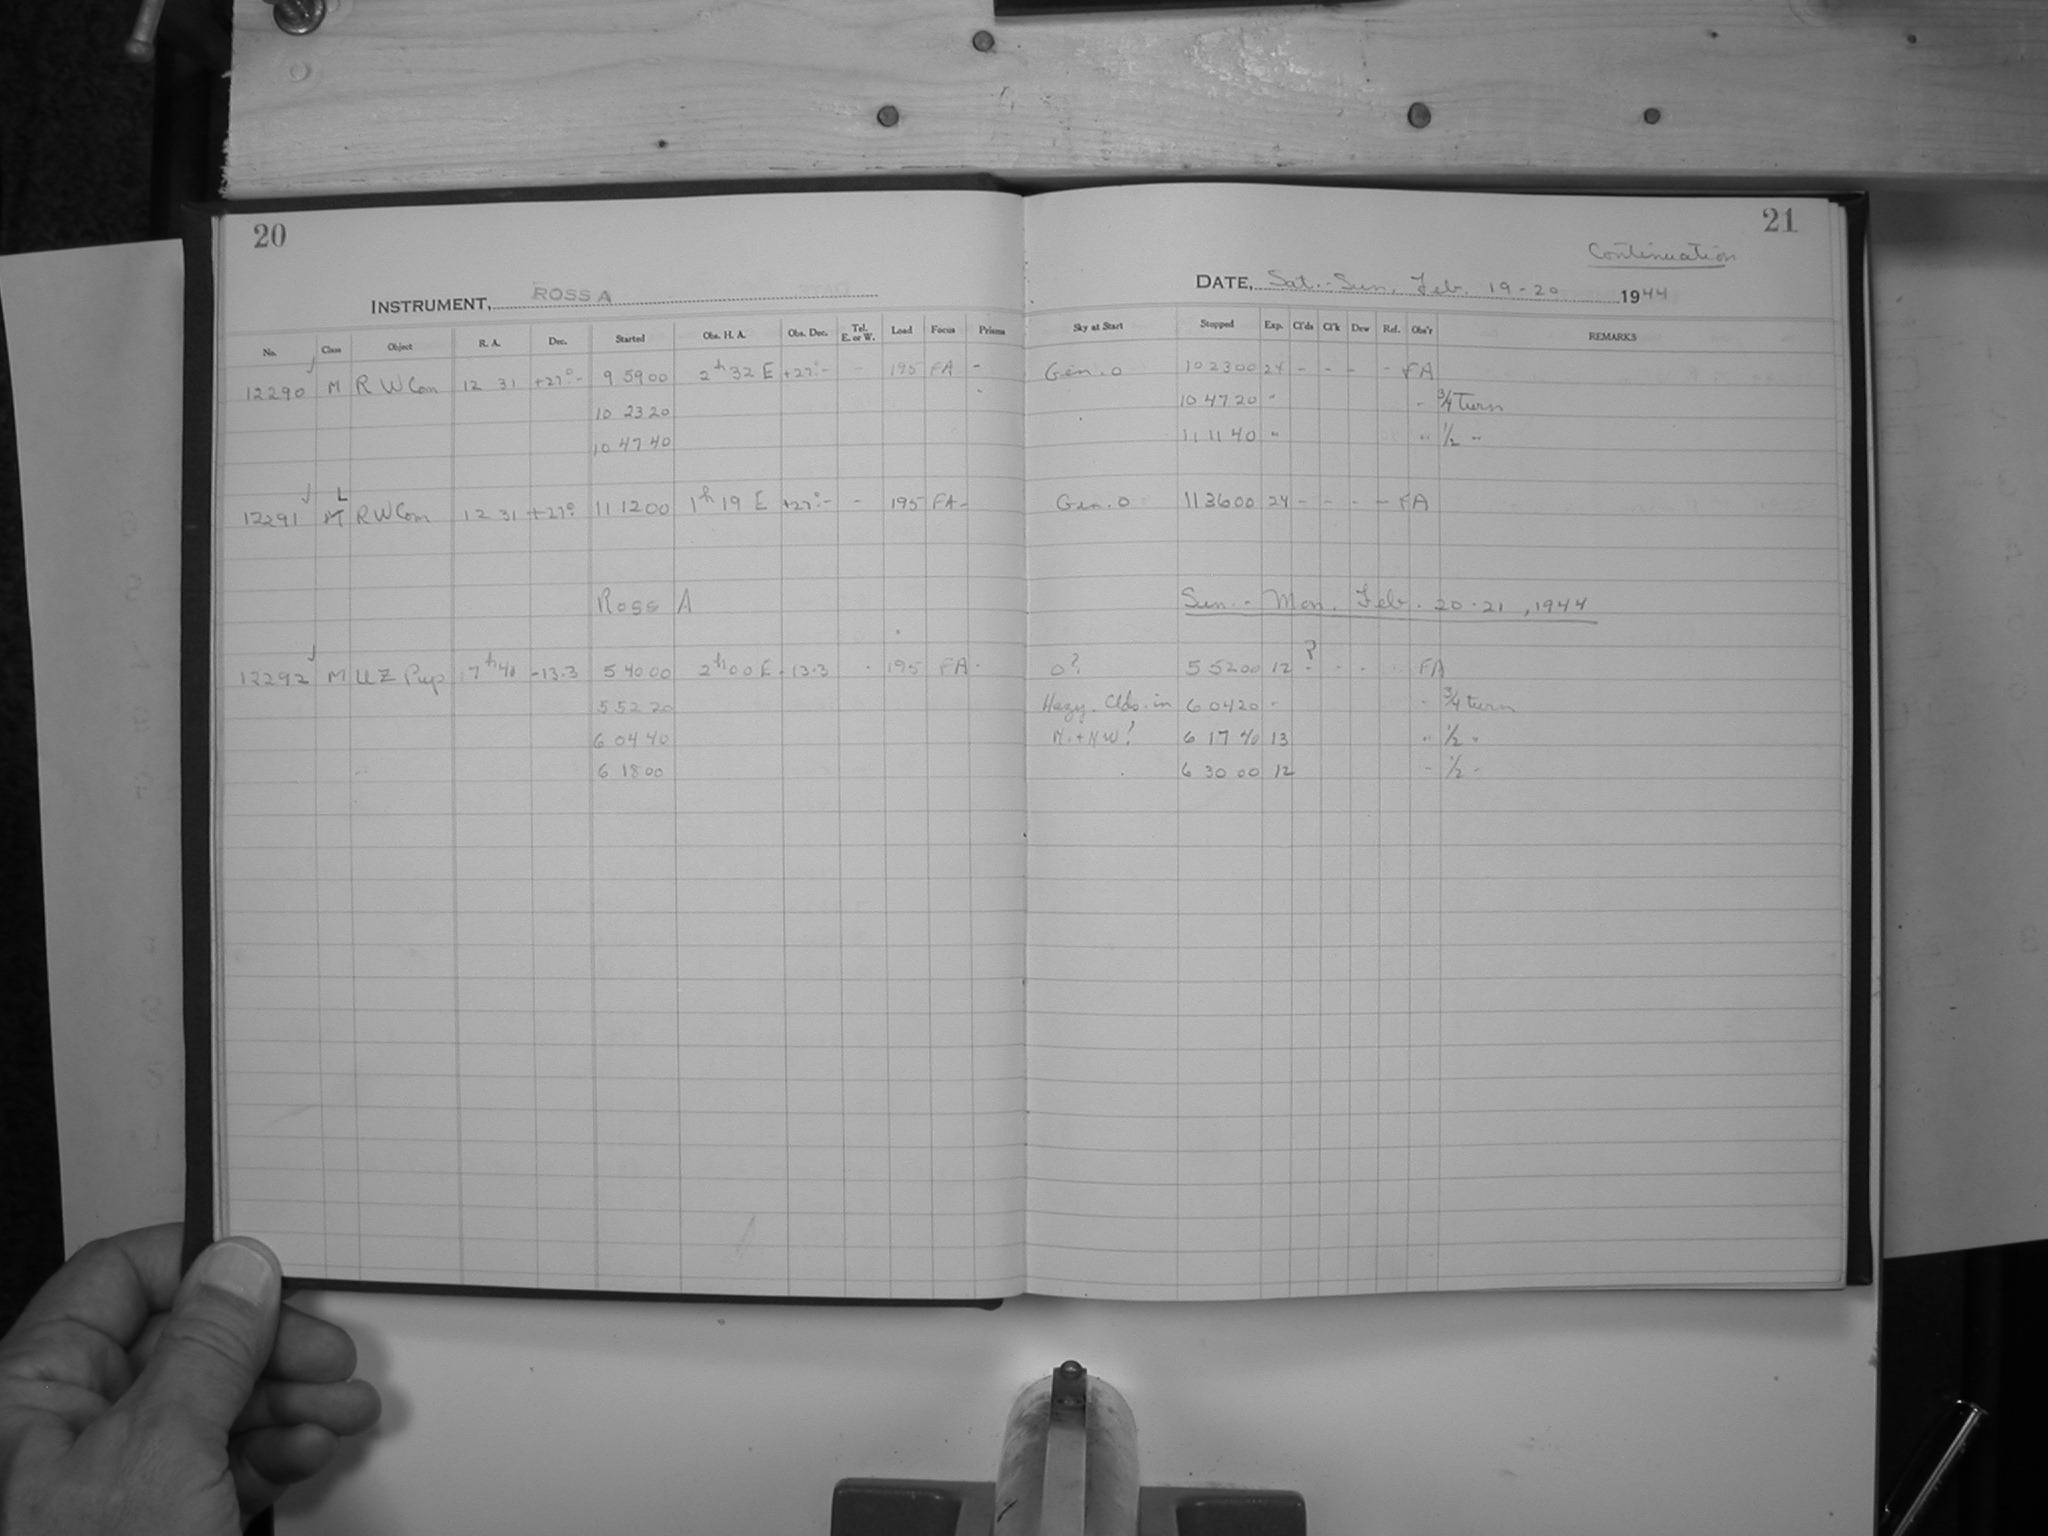 20
INSTRUMENT, ROSS A
No. Class Object R. A. Dec. Started Obs. H. A. Obs. Dec. Tel. E. or W. Load Focus Prisms
12290 M R W Com 12 31 +27°- 9 59 00 2h 32 E +27°- - 195 FA -
10 23 20
10 47 40
L
12291 M R W Com 12 31 +27° 11 12 00 1h 19 E +27°- - 195 FA -
Ross A
12292 M UZ Pup 7h 41 -13.3 5 40 00 2h 00 E -13.3 195 FA
5 52 20
6 04 40
6 18 00
21
Continuation
DATE, Sat. - Sun. Feb. 19-20 1944
Sky at Start Stopped Exp. Cl'ds Cl'k Dew Ref. Obs'r REMARKS
Gen. 0 10 23 00 24 - - - - FA
10 47 20 " " 3/4 Turn
11 11 40 " " 1/2 "
Gen. 0 11 36 00 24 - - - - FA
Sun. - Mon. Feb. 20-21, 1944
0? 5 52 00 12 ? - - - FA
Hazy. Clds. in 6 04 20 " " 3/4 turn
N. + NW! 6 17 40 13 " 1/2 "
6 30 00 12 " 1/2 "